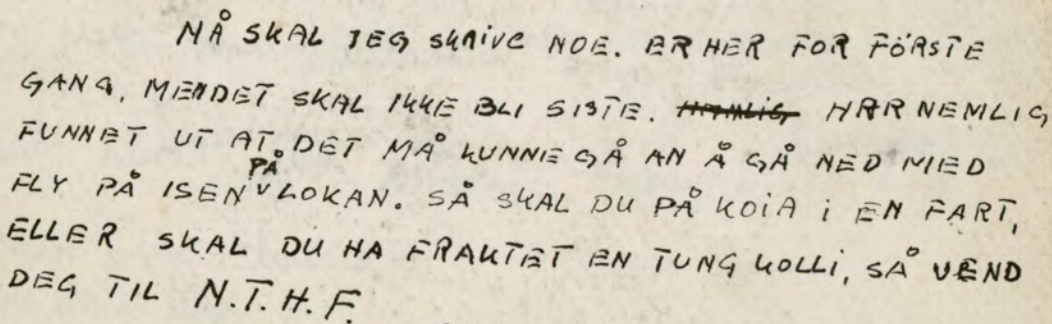 NÅ SKAL JEG SKRIVE NOE. ER HER FOR FÖRSTE
GANG, MEN DET SKAL IKKE BLI SISTE. HAR NEMLIG
FUNNET UT AT DET MÅ KUNNE GÅ AN Å GÅ NED MED
FLY PÅ ISEN PÅ LOKAN. SÅ SKAL DU PÅ KOIA i EN FART,
ELLER SKAL DU HA FRAKTET EN TUNG KOLLI, SÅ VEND
DEG TIL N.T.H.F.